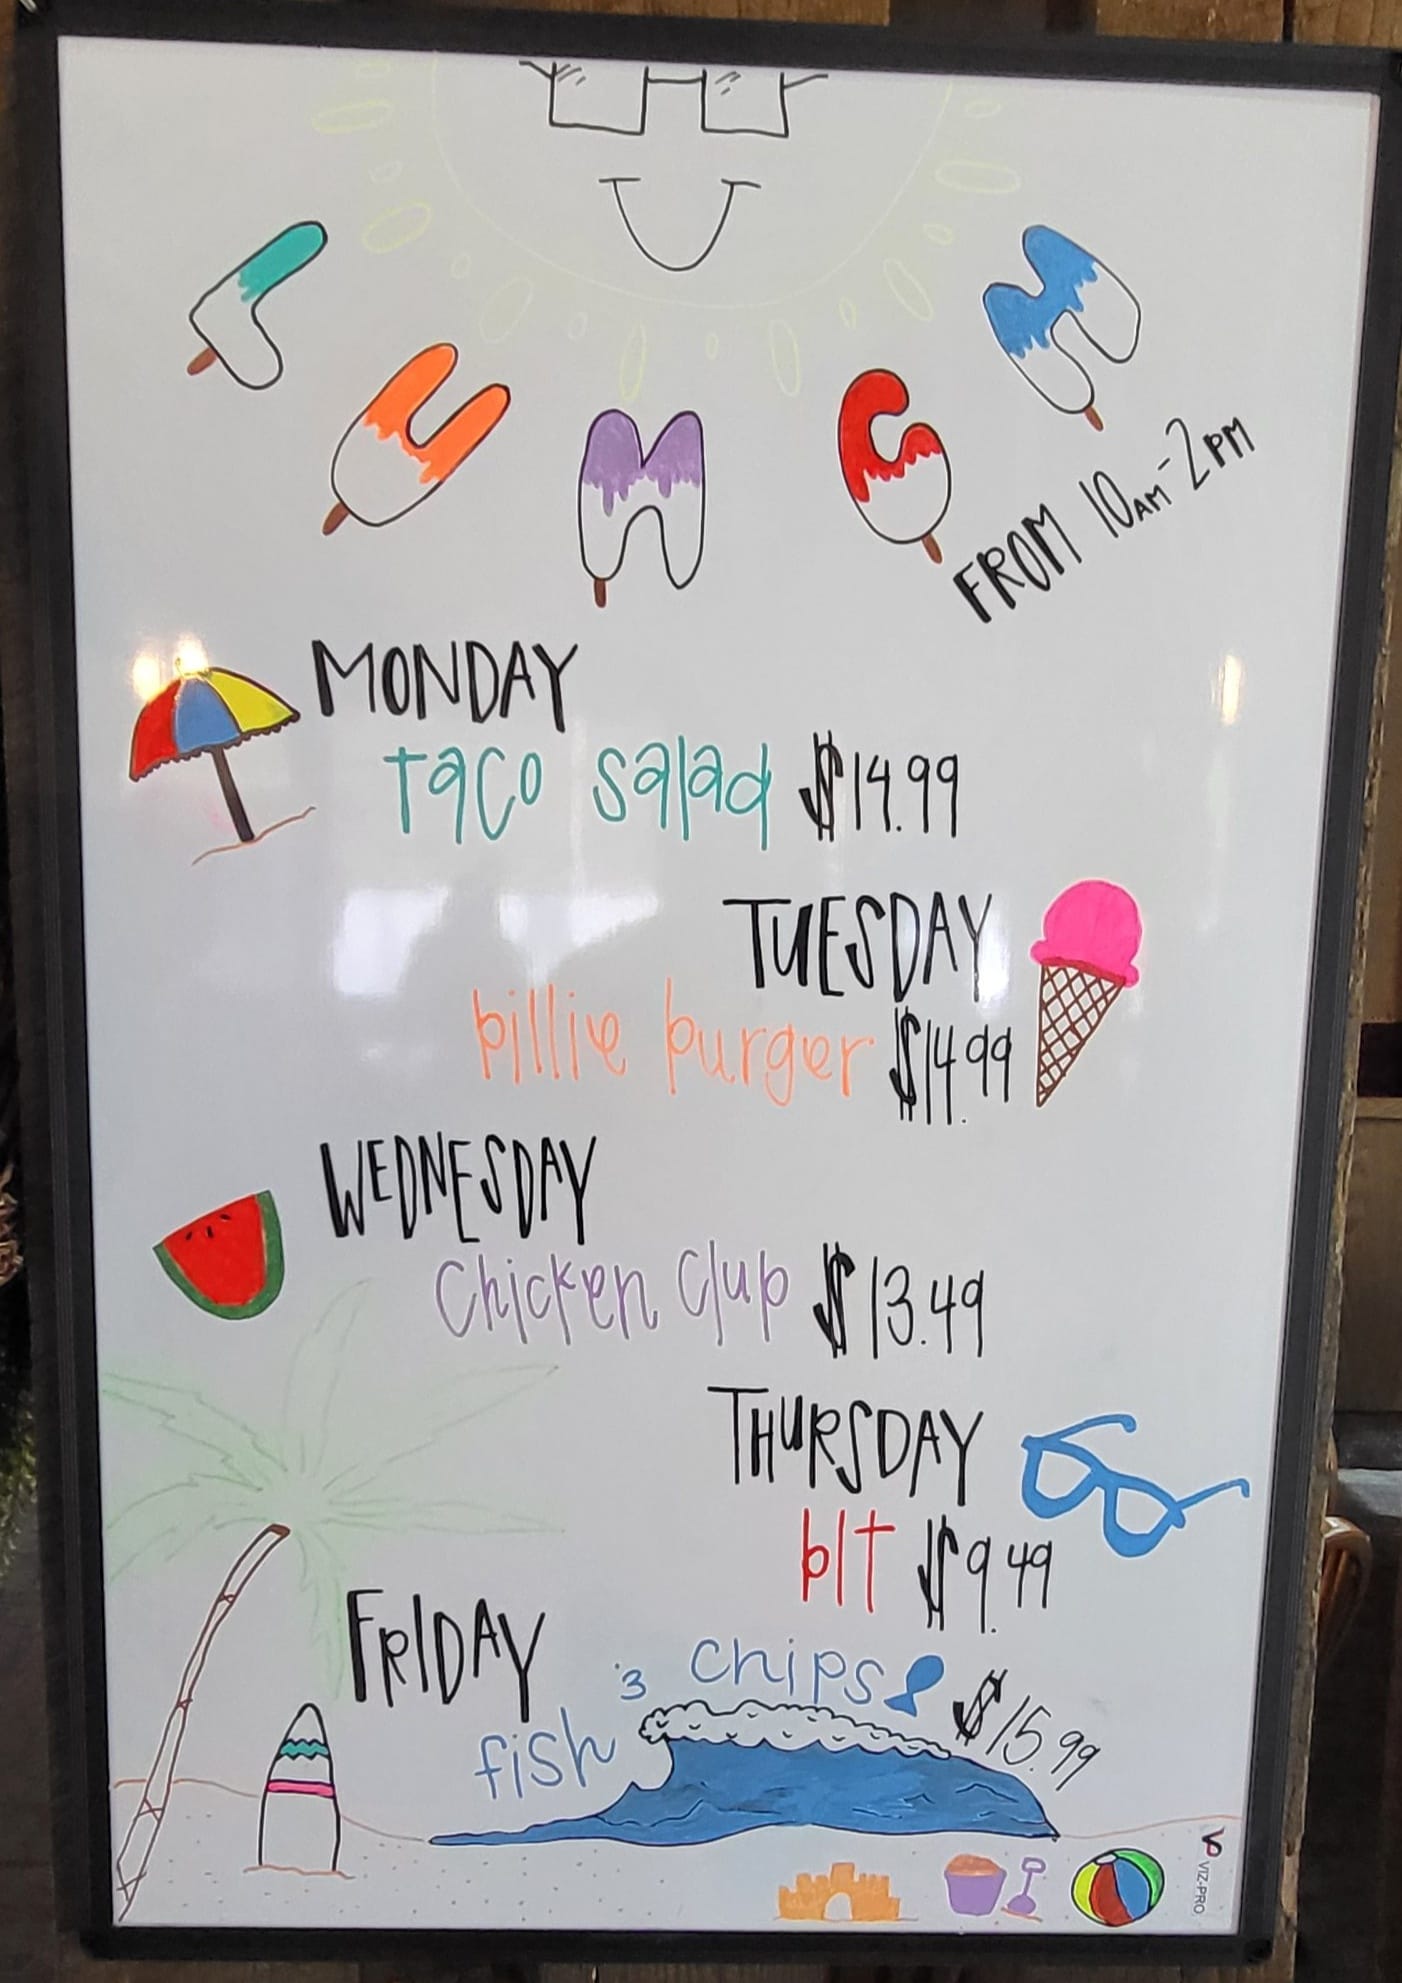 LUNCH
FROM 10AM-2PM
MONDAY
taco salad $14.99
TUESDAY
billie burger $14.99
WEDNESDAY
Chicken Club $13.49
THURSDAY
blt $9.49
FRIDAY
fish & chips $15.99
VIZ-PRO